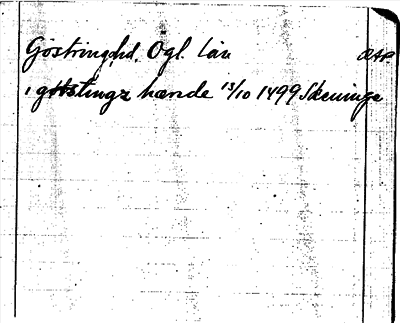 Göstringhd, Ogl. Län RAP
i gøstingz hærede 13/10 1499 Skeninge